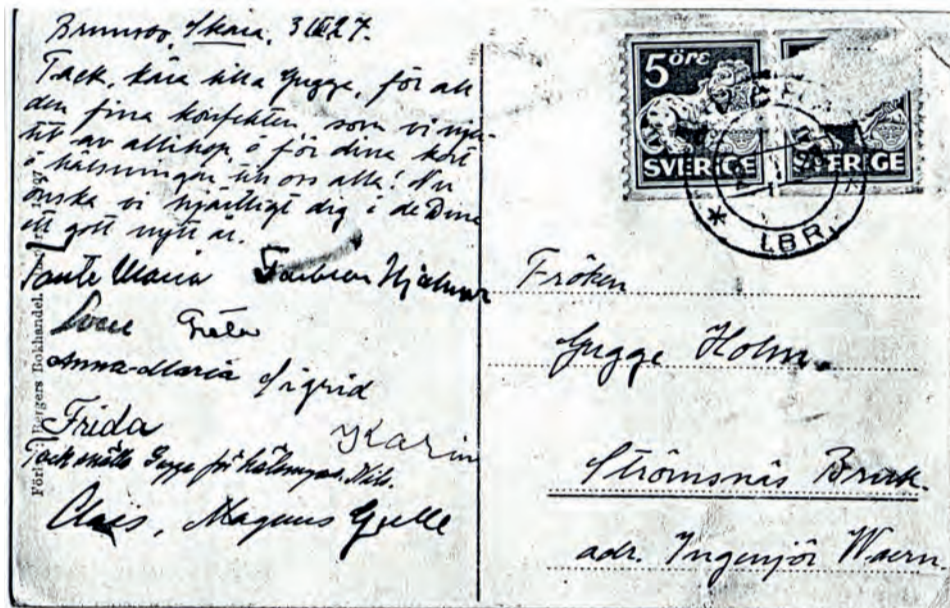 Brunsbo, Skara, 31/XII 27.
Tack, kära lilla Gugge, för all
den fina konfekten, som vi nju-
tit av allihop, o för dina kort
o hälsningar till oss alla! Nu
önska vi hjärtligt dig o de Dina
ett gott nytt år.
Tante Maria Farbror Hjalmar
Sven Greta
Anna-Maria Sigrid
Frida Karin
Tack snälla Gugge för hälsningen. Nils.
Claës, Magnus Gjelle
Bergers Bokhandel.
5 ÖRE
SVERIGE SVERIGE
LBR.
Fröken
Gugge Holm.
Strömsnäs Bruk.
adr. Ingenjör Waern.